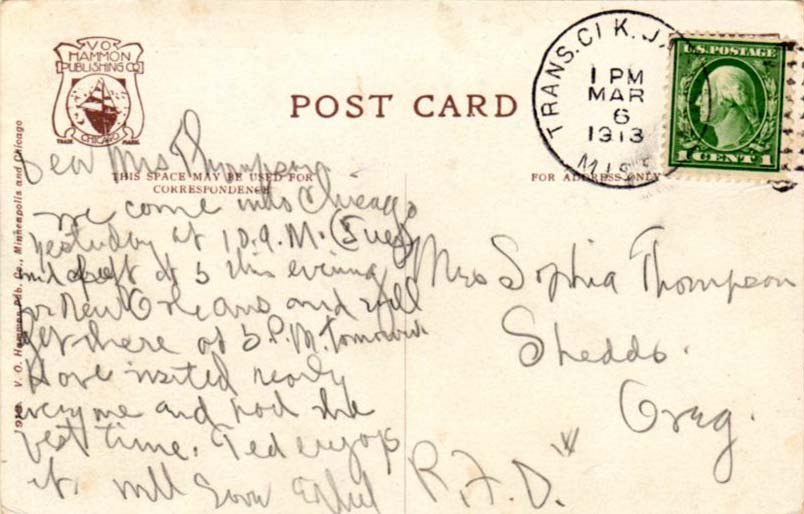 V O
HAMMON
PUBLISHING CO
CHICAGO
TRADE MARK
POST CARD
TRANS. CLK. J.
1 PM
MAR
6
1913
U.S. POSTAGE
1 CENT 1
THIS SPACE MAY BE USED FOR
CORRESPONDENCE
FOR ADDRESS ONLY
V. O. Hammon Pub. Co., Minneapolis and Chicago
Dear Mrs Thompson
We come into Chicago
yesterday at 10 A.M. (Tues)
and left at 5 this evening
for New Orleans and will
get there at 5 P.M. tomorrow
Have visited nearly
every one and had the
best time. Ted enjoys
it. will Ethel
Mrs Sophia Thompson
Shedds.
Oreg.
R.F.D.